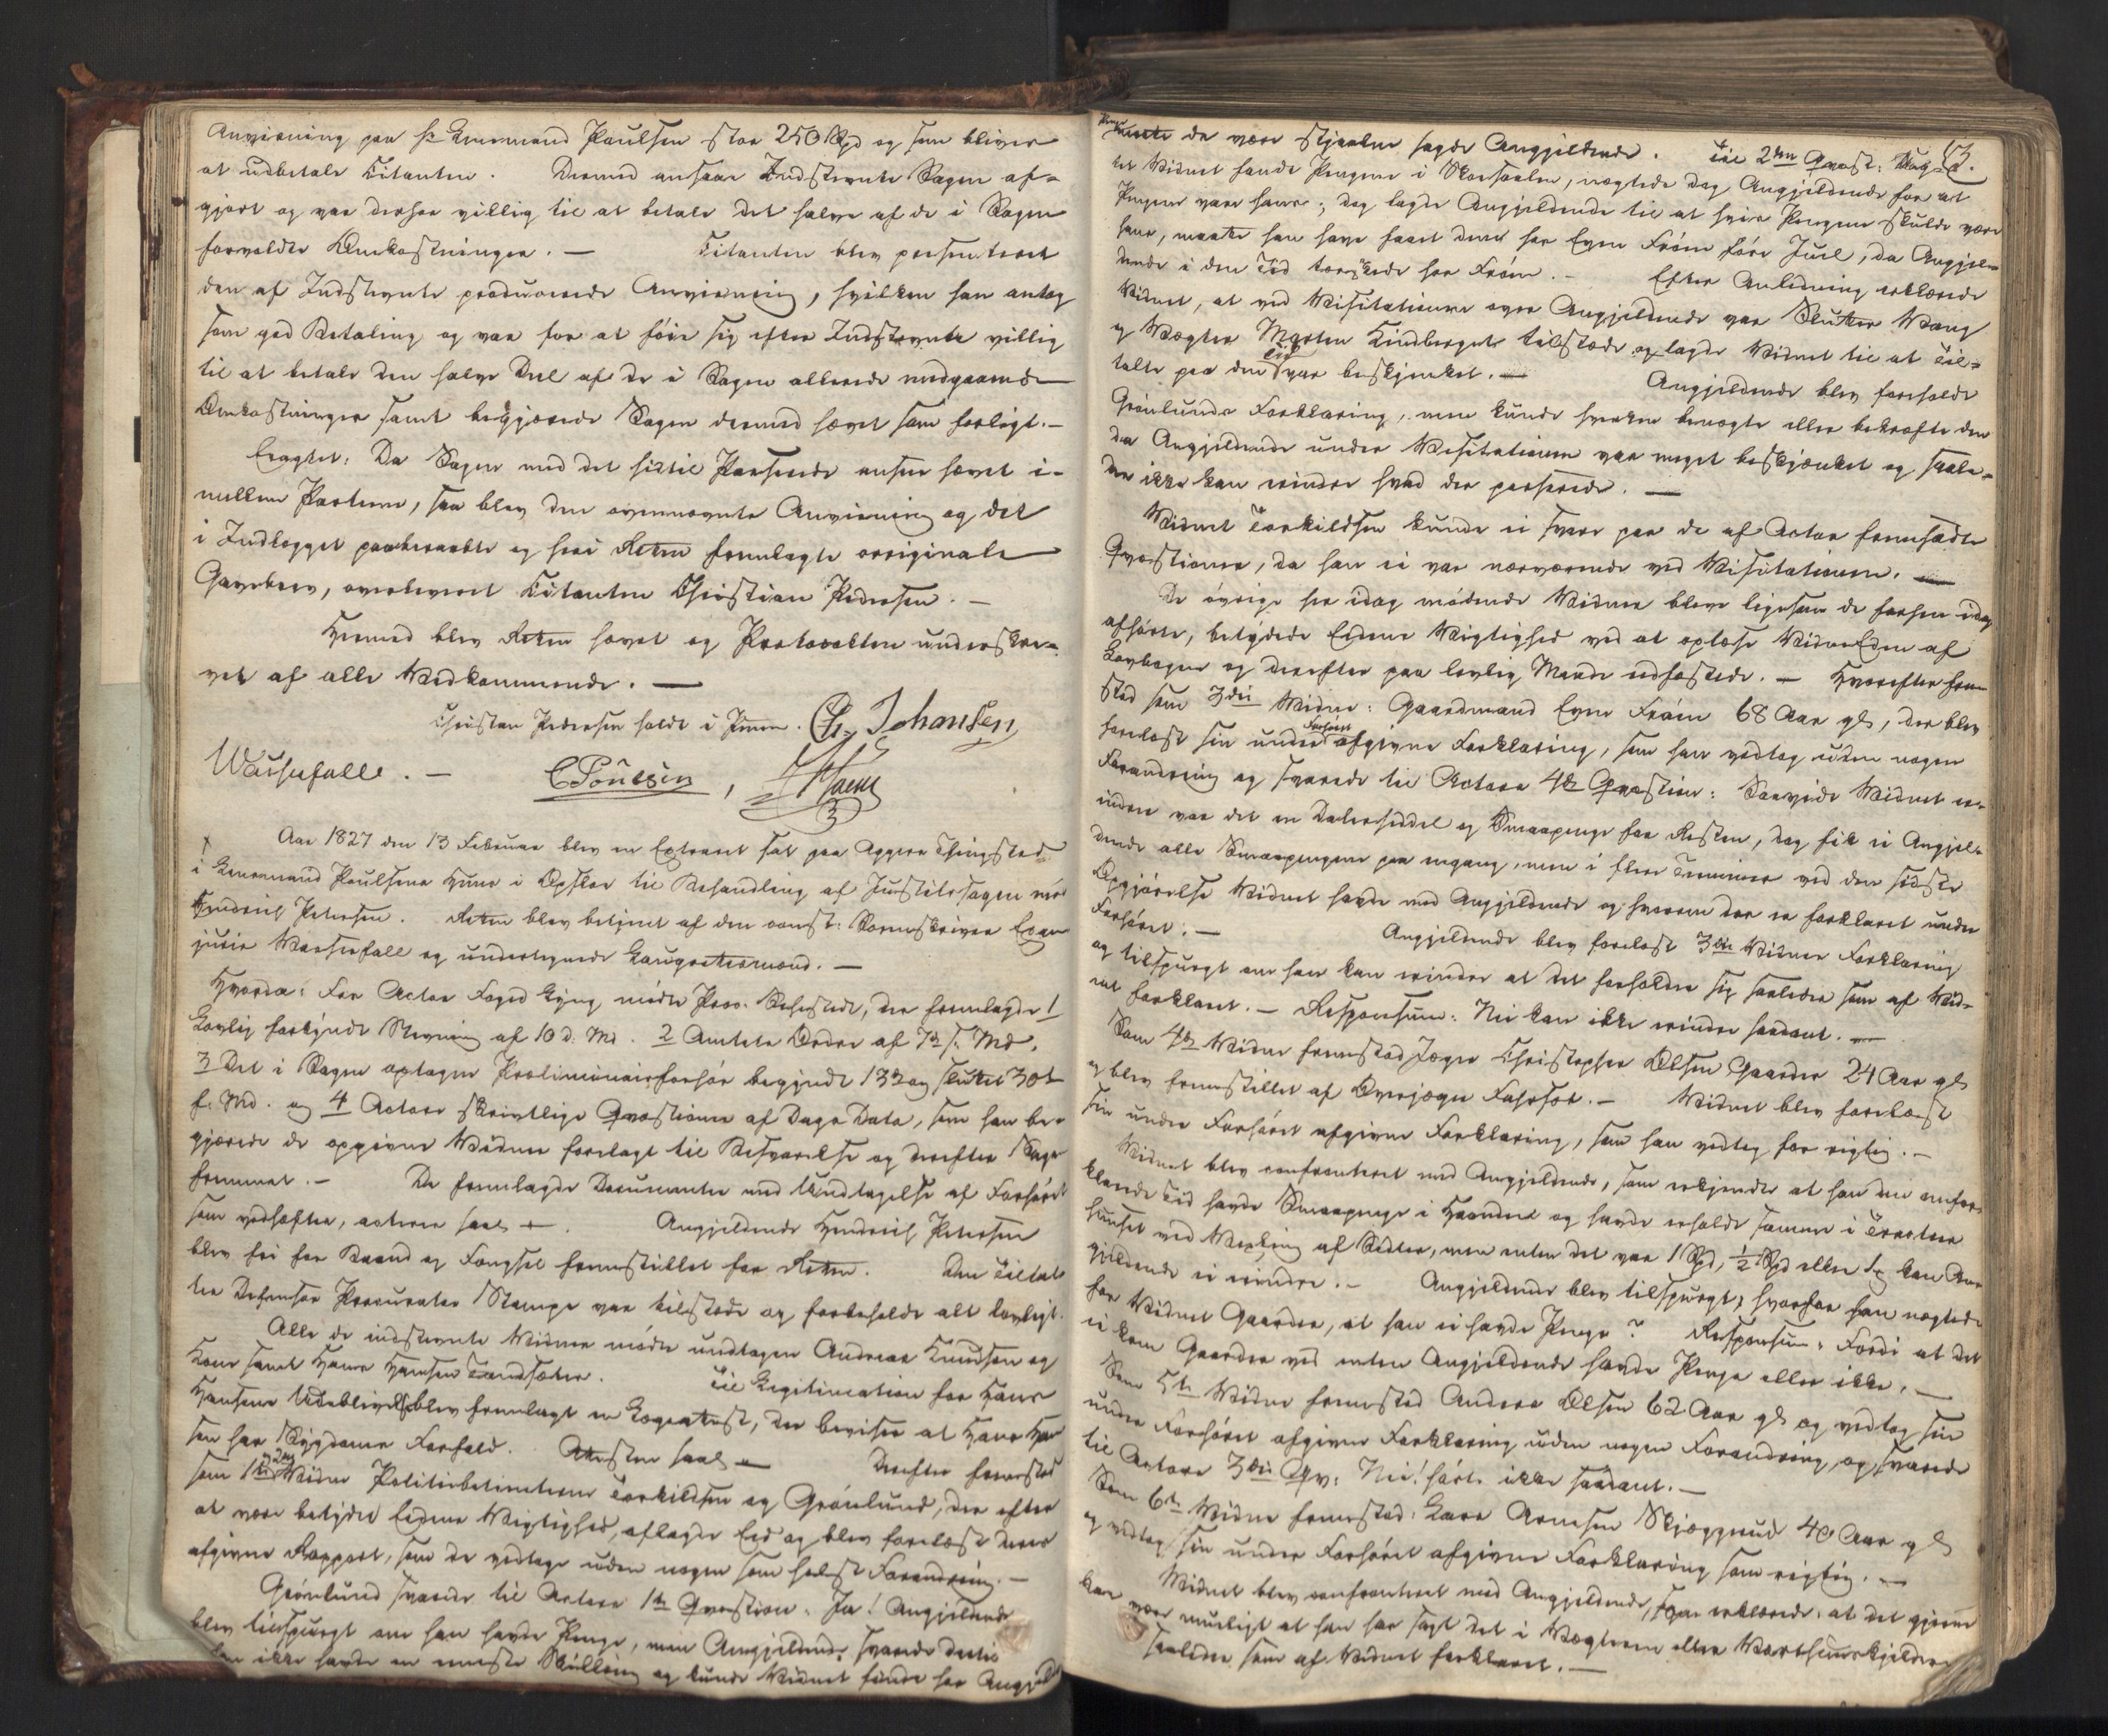 Anvisning paa Hr Lensmand Poulsen stor 250 Spd og som bliver
at udbetale Citanten. Dermed ansaae Indstevnte Sagen af-
gjort og var derhos villig til at betale det halve af de i Sagen
forvoldte Omkostninger. — Citanten blev presenteret
den af Indstevnte producerede Anviisning, hvilken han antog
som god Betaling og var for at føie sig efter Indstevnte villig
til at betale den halve Deel af de i Sagen allerede medgaaende
Omkostninger samt begjærede Sagen dermed hævet som forligt. —
Eragtet: Da Sagen med det hidtil Passerede ansees hævet i-
mellem Parterne, saa blev den ovennævnte Anviisning og det
i Indlægget paaberaabte og her i Retten fremlagte originale
Gavebrev, overleveret Citanten Christian Pedersen. —
Hermed blev Retten hævet og Protocollen underskre-
vet af alle Vedkommende. —
Christen Pedersen holdt i Penn. Ch. Johansen
Wassenfalle. — C Poulsen,
Aar 1827 den 13 Februar blev en Extraret sat paa Aggers Thingsted
i Lensmand Poulsens Huus i Opsloe til Behandling af Justitssagen mod
Hendrich Petersen. Retten blev betjent af den const: Sorenskriver Exam
juris Wassenfall og undertegnede Laugrettesmænd. —
Hvorda: For Actor Foged Lyng mødte Proc. Sehested, der fremlagde 1
Lovlig forkyndt Stevning af 10 d. Md. 2 Amtets Ordre af 7de f. Md.
3 Det i Sagen optagne Præliminairforhør begyndt 13de og sluttet 30te
f. Md. og 4 Actors skrivtlige Qvæstioner af Dags Dato, som han be-
gjærede de opgivne Vidner forelagt til Besvarelse og derefter Sagen
fremmet. — De fremlagde Documenter med Undtagelse af Forhøret
som vedhæftes, acteres saal. Angjeldende Hendrich Petersen
blev fri for Baand og Fængsel fremstillet for Retten. Den Tiltal-
tes Defensor Procurator Stampe var tilstæde og forbeholdt alt lovligt.
Alle de indstevnte Vidner mødte undtagen Andreas Knudsen og
Kone samt Hans Hansen Sandsæter. Til Legitimation for Hans
Hansens Udeblivelse blev fremlagt en Lægeattest, der beviser at Hans Han-
sen har Sygdoms Forfald. Attesten saal. Derefter fremstod
som 1te og 2det Vidne Politiebetjentene Torkildsen og Grønlund, der efter
at være betydet Edens Vigtighed, aflagde Eed og blev forelæst deres
afgivne Rapport, som de vedtoge uden nogen som helst Forandring. —
Grønlund svarede til Actors 1te Qvæstion: Ja! Angjeldende
blev tilspurgt om han havde Penge, men Angjeldende svarede dertil
han ikke havde en eneste Skilling og kunde Vidnet finde hos Angjeld
53.
Penge maatte de være stjaalne sagde Angjeldende. Til 2den Qvæst:
det Vidnet fandt Pengene i Skosaalen, nægtede dog Angjeldende for at
Pengene vare hans; dog lagde Angjeldende til at hvis Pengene skulde være
hans, maatte han have faaet dem hos Even Frøen føre Juul, da Angjel-
dende i den Tid tærskede hos Frøen. — Efter Anledning erklærede
Vidnet, at ved Visitationen over Angjeldende var Slutter Wang
og Vægter Morten Lindberget tilstæde og lagde Vidnet til at Til-
talte paa den Tid var beskjenket. — Angjeldende blev foreholdt
Grønlunds Forklaring, men kunde hverken benægte eller bekræfte den
da Angjeldende under Visitationen var meget beskjænket og saale-
des ikke kan erindre hvad der passerede. —
Vidnet Torkildsen kunde ei svare paa de af Actor fremsatte
Qvæstioner, da han ei var nærværende ved Visitationen. —
De øvrige her idag mødende Vidner bleve ligesom de forhen idag
afhørte, betydede Edens Vigtighed ved at oplæse Vidne Eden af
Lovbogen og derefter paa lovlig Maade edfæstede. — Hvorefter frem-
stod som 3die Vidne: Gaardmand Even Frøen 68 Aar gl, der blev
forelæst sin under Forhøret afgivne Forklaring, som han vedtog uden nogen
Forandring og svarede til Actors 4de Qvæstion: Saavidt Vidnet er-
indrer var det en Dalerseddel og Smaapenge for Resten, dog fik ei Angjel-
dende alle Smaapengene paa engang, men i flere Terminer ved den sidste
Opgjørelse Vidnet havde med Angjeldende og hvorom der er forklaret under
Forhøret. — Angjeldende blev forelæst 3die Vidnes Forklaring
og tilspurgt om han kan erindre at det forholder sig saaledes som af Vid-
net forklaret. — Responsum: Nei kan ikke erindre saadant. —
Som 4de Vidne fremstod Jæger Christopher Olsen Gaarder 24 Aar gl
og blev fremstillet af Overjæger Fossos. — Vidnet blev forelæst
sin under Forhøret afgivne Forklaring, som han vedtog for rigtig. —
Vidnet blev confronteret med Angjeldende, som erkjendte at han den omfor-
klarede Tid havde Smaapenge i Haanden og havde erholdt samme i Tracteur
huuset ved Vexling af Sedler, men enten det var 1 Spd, ½ Spd eller kan An-
gjeldende ei erindre. — Angjeldende blev tilspurgt, hvorfor han nægtede
for Vidnet Gaarder, at han ei havde Penge? Responsum: Fordi at det
ei kom Gaarder ved enten Angjeldende havde Penge eller ikke. —
Som 5te Vidne fremstod Anders Olsen 62 Aar gl og vedtog sin
under Forhøret afgivne Forklaring uden nogen Forandring, og svarede
til Actors 3die Qv: Nei! hørte ikke saadant. —
Som 6te Vidne fremstod: Lars Arnesen Skjæggerud 40 Aar gl
og vedtog sin under Forhøret afgivne Forklaring som rigtig. —
Vidnet blev confronteret med Angjeldende, som erklærede: at det gjerne
kan være mueligt at han har sagt det i Vægteren eller Varthuuskjelderen
saaledes som af Vidnet forklaret. —